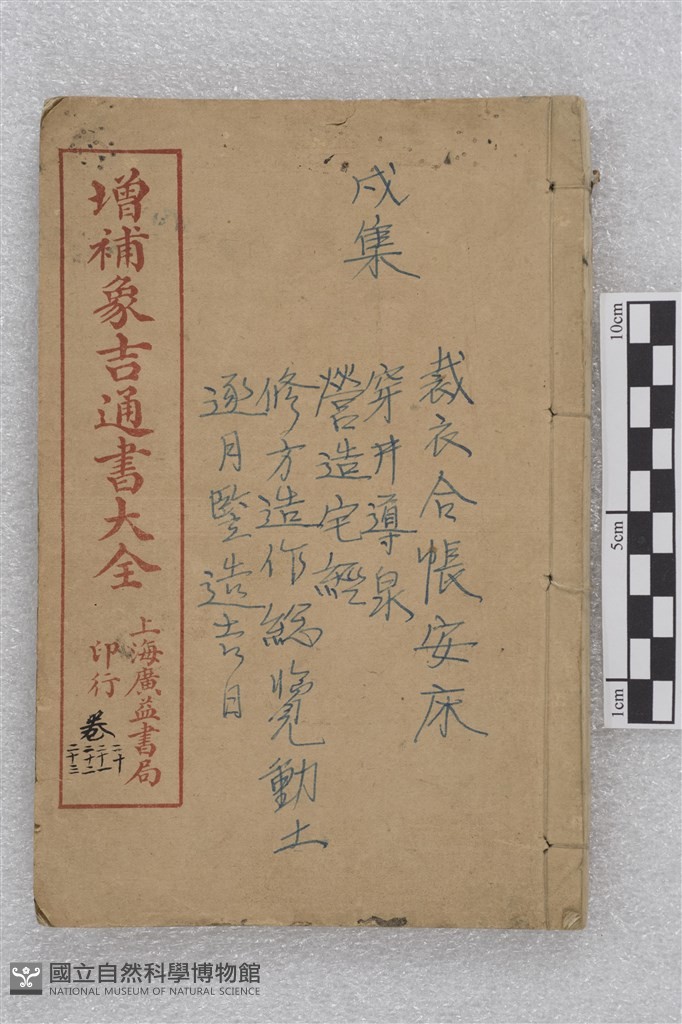 戌集
裁衣合帳安床
穿井導泉
營造宅經
修方造作總覽動土
逐月豎造吉日
增補象吉通書大全
上海廣益書局
印行
卷
二十
二十一
二十二
二十三
10cm
5cm
1cm
國立自然科學博物館
NATIONAL MUSEUM OF NATURAL SCIENCE